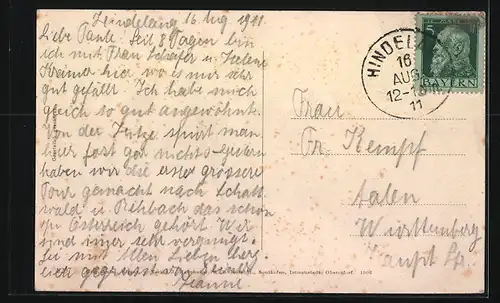 Hindelang 16. Aug. 1911.
Liebe Tante! Seit 8 Tagen bin
ich mit Frau Schäfer u. Helene
Kramer hier, wo es mir sehr
gut gefällt. Ich habe mich
gleich so gut angewöhnt.
Von der Hitze spürt man
hier fast gar nichts. Gestern
haben wir die erste grössere
Tour gemacht nach Schatt-
wald u. Rehbach das schon
zu Österreich gehört. Wir
sind immer sehr vergnügt.
Sei mit allen Lieben herz-
lich gegrüsst
HINDELANG
16
AUG
11
5
BAYERN
Frau
Fr. Kempf
Aalen
Württemberg